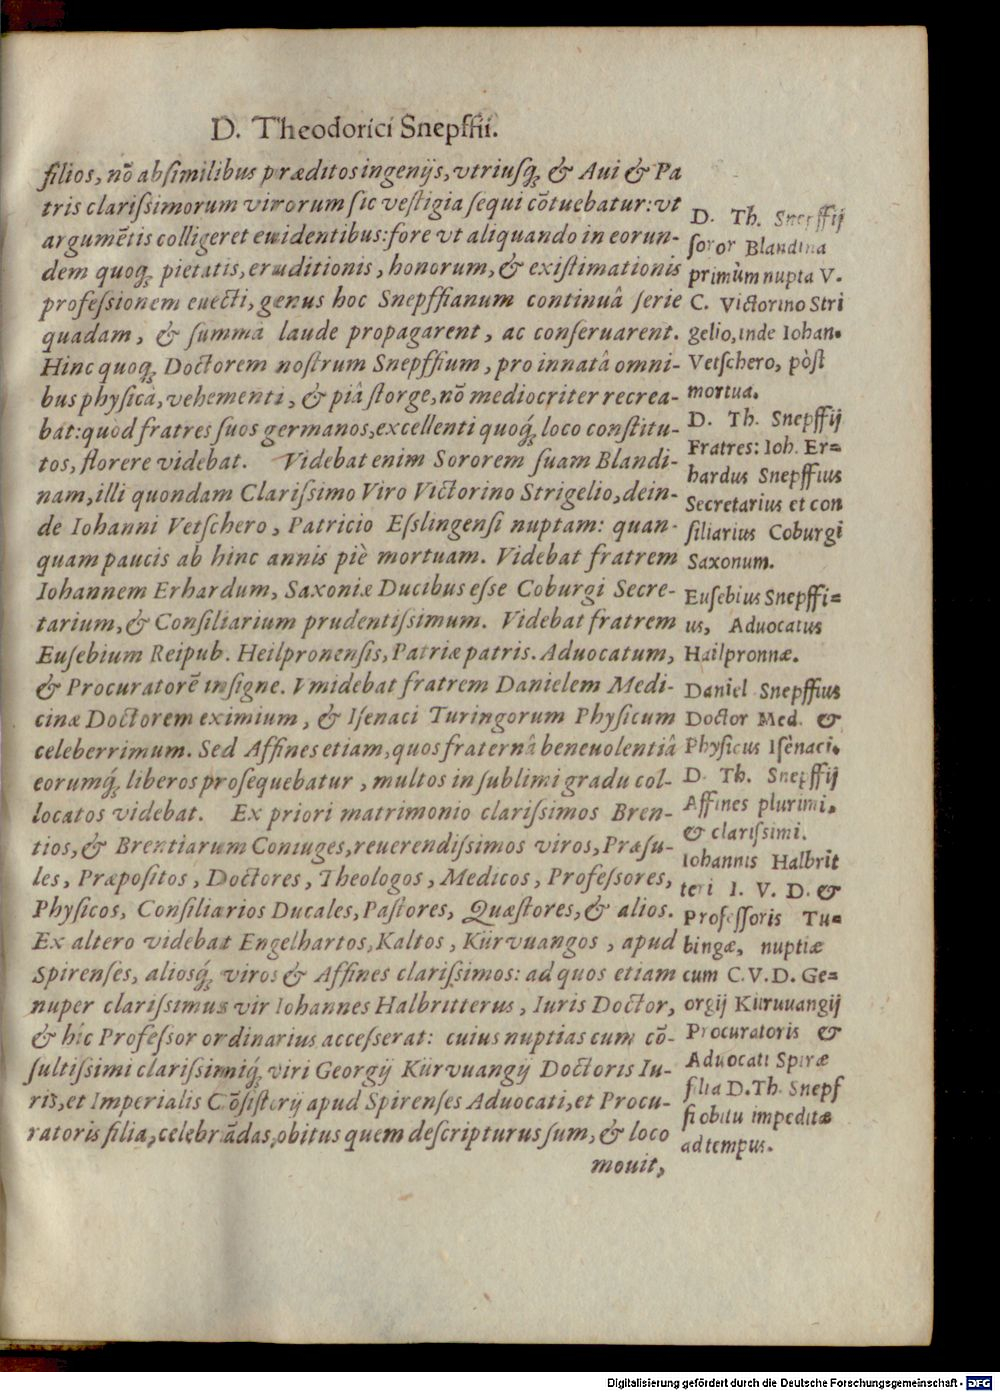 D. Theodorici Snepffii.
filios, nõ absimilibus præditos ingenijs, vtriusq́; & Aui & Pa
tris clarissimorum virorum sic vestigia sequi cõtuebatur: vt
argumẽtis colligeret euidentibus: fore vt aliquando in eorun-
dem quoq; pietatis, eruditionis, honorum, & existimationis
professionem euecti, genus hoc Snepffianum continuâ serie
quadam, & summâ laude propagarent, ac conseruarent.
Hinc quoq; Doctorem nostrum Snepffium, pro innatâ omni-
bus physicâ, vehementi, & piâ storge, nõ mediocriter recrea-
bat: quod fratres suos germanos, excellenti quoq́; loco constitu-
tos, florere videbat. Videbat enim Sororem suam Blandi-
nam, illi quondam Clarissimo Viro Victorino Strigelio, dein-
de Iohanni Vetschero, Patricio Esslingensi nuptam: quan-
quam paucis ab hinc annis piè mortuam. Videbat fratrem
Iohannem Erhardum, Saxoniæ Ducibus esse Coburgi Secre-
tarium, & Consiliarium prudentissimum. Videbat fratrem
Eusebium Reipub. Heilpronensis, Patriæ patris. Aduocatum,
& Procuratorẽ insigne. Vmidebat fratrem Danielem Medi-
cinæ Doctorem eximium, & Isenaci Turingorum Physicum
celeberrimum. Sed Affines etiam, quos fraternâ beneuolentiâ
eorumq́; liberos prosequebatur, multos in sublimi gradu col-
locatos videbat. Ex priori matrimonio clarissimos Bren-
tios, & Brentiarum Coniuges, reuerendissimos viros, Præsu-
les, Præpositos, Doctores, Theologos, Medicos, Professores,
Physicos, Consiliarios Ducales, Pastores, Quæstores, & alios.
Ex altero videbat Engelhartos, Kaltos, Kürvuangos, apud
Spirenses, aliosq́; viros & Affines clarissimos: ad quos etiam
nuper clarissimus vir Iohannes Halbritterus, Iuris Doctor,
& hîc Professor ordinarius accesserat: cuius nuptias cum cõ-
sultissimi clarissimiq́; viri Georgij Kürvuangij Doctoris Iu-
ris, et Imperialis Cõsistorij apud Spirenses Aduocati, et Procu-
ratoris filia, celebrãdas, obitus quem descripturus sum, & loco
mouit,
D. Th. Snepffij
soror Blandina
primùm nupta V.
C. Victorino Stri
gelio, inde Iohan.
Vetschero, pòst
mortua.
D. Th. Snepffij
Fratres: Ioh. Er-
hardus Snepffius
Secretarius et con
siliarius Coburgi
Saxonum.
Eusebius Snepffi-
us, Aduocatus
Hailpronnæ.
Daniel Snepffius
Doctor Med. &
Physicus Isenaci.
D. Th. Snepffij
Affines plurimi.
& clarissimi.
Iohannis Halbrit
teri I. V. D. &
Professoris Tu-
bingæ, nuptiæ
cum C. V. D. Ge-
orgij Kürvuangij
Procuratoris &
Aduocati Spiræ
filia D. Th. Snepf
fi obitu impeditæ
ad tempus.
Digitalisierung gefördert durch die Deutsche Forschungsgemeinschaft - DFG